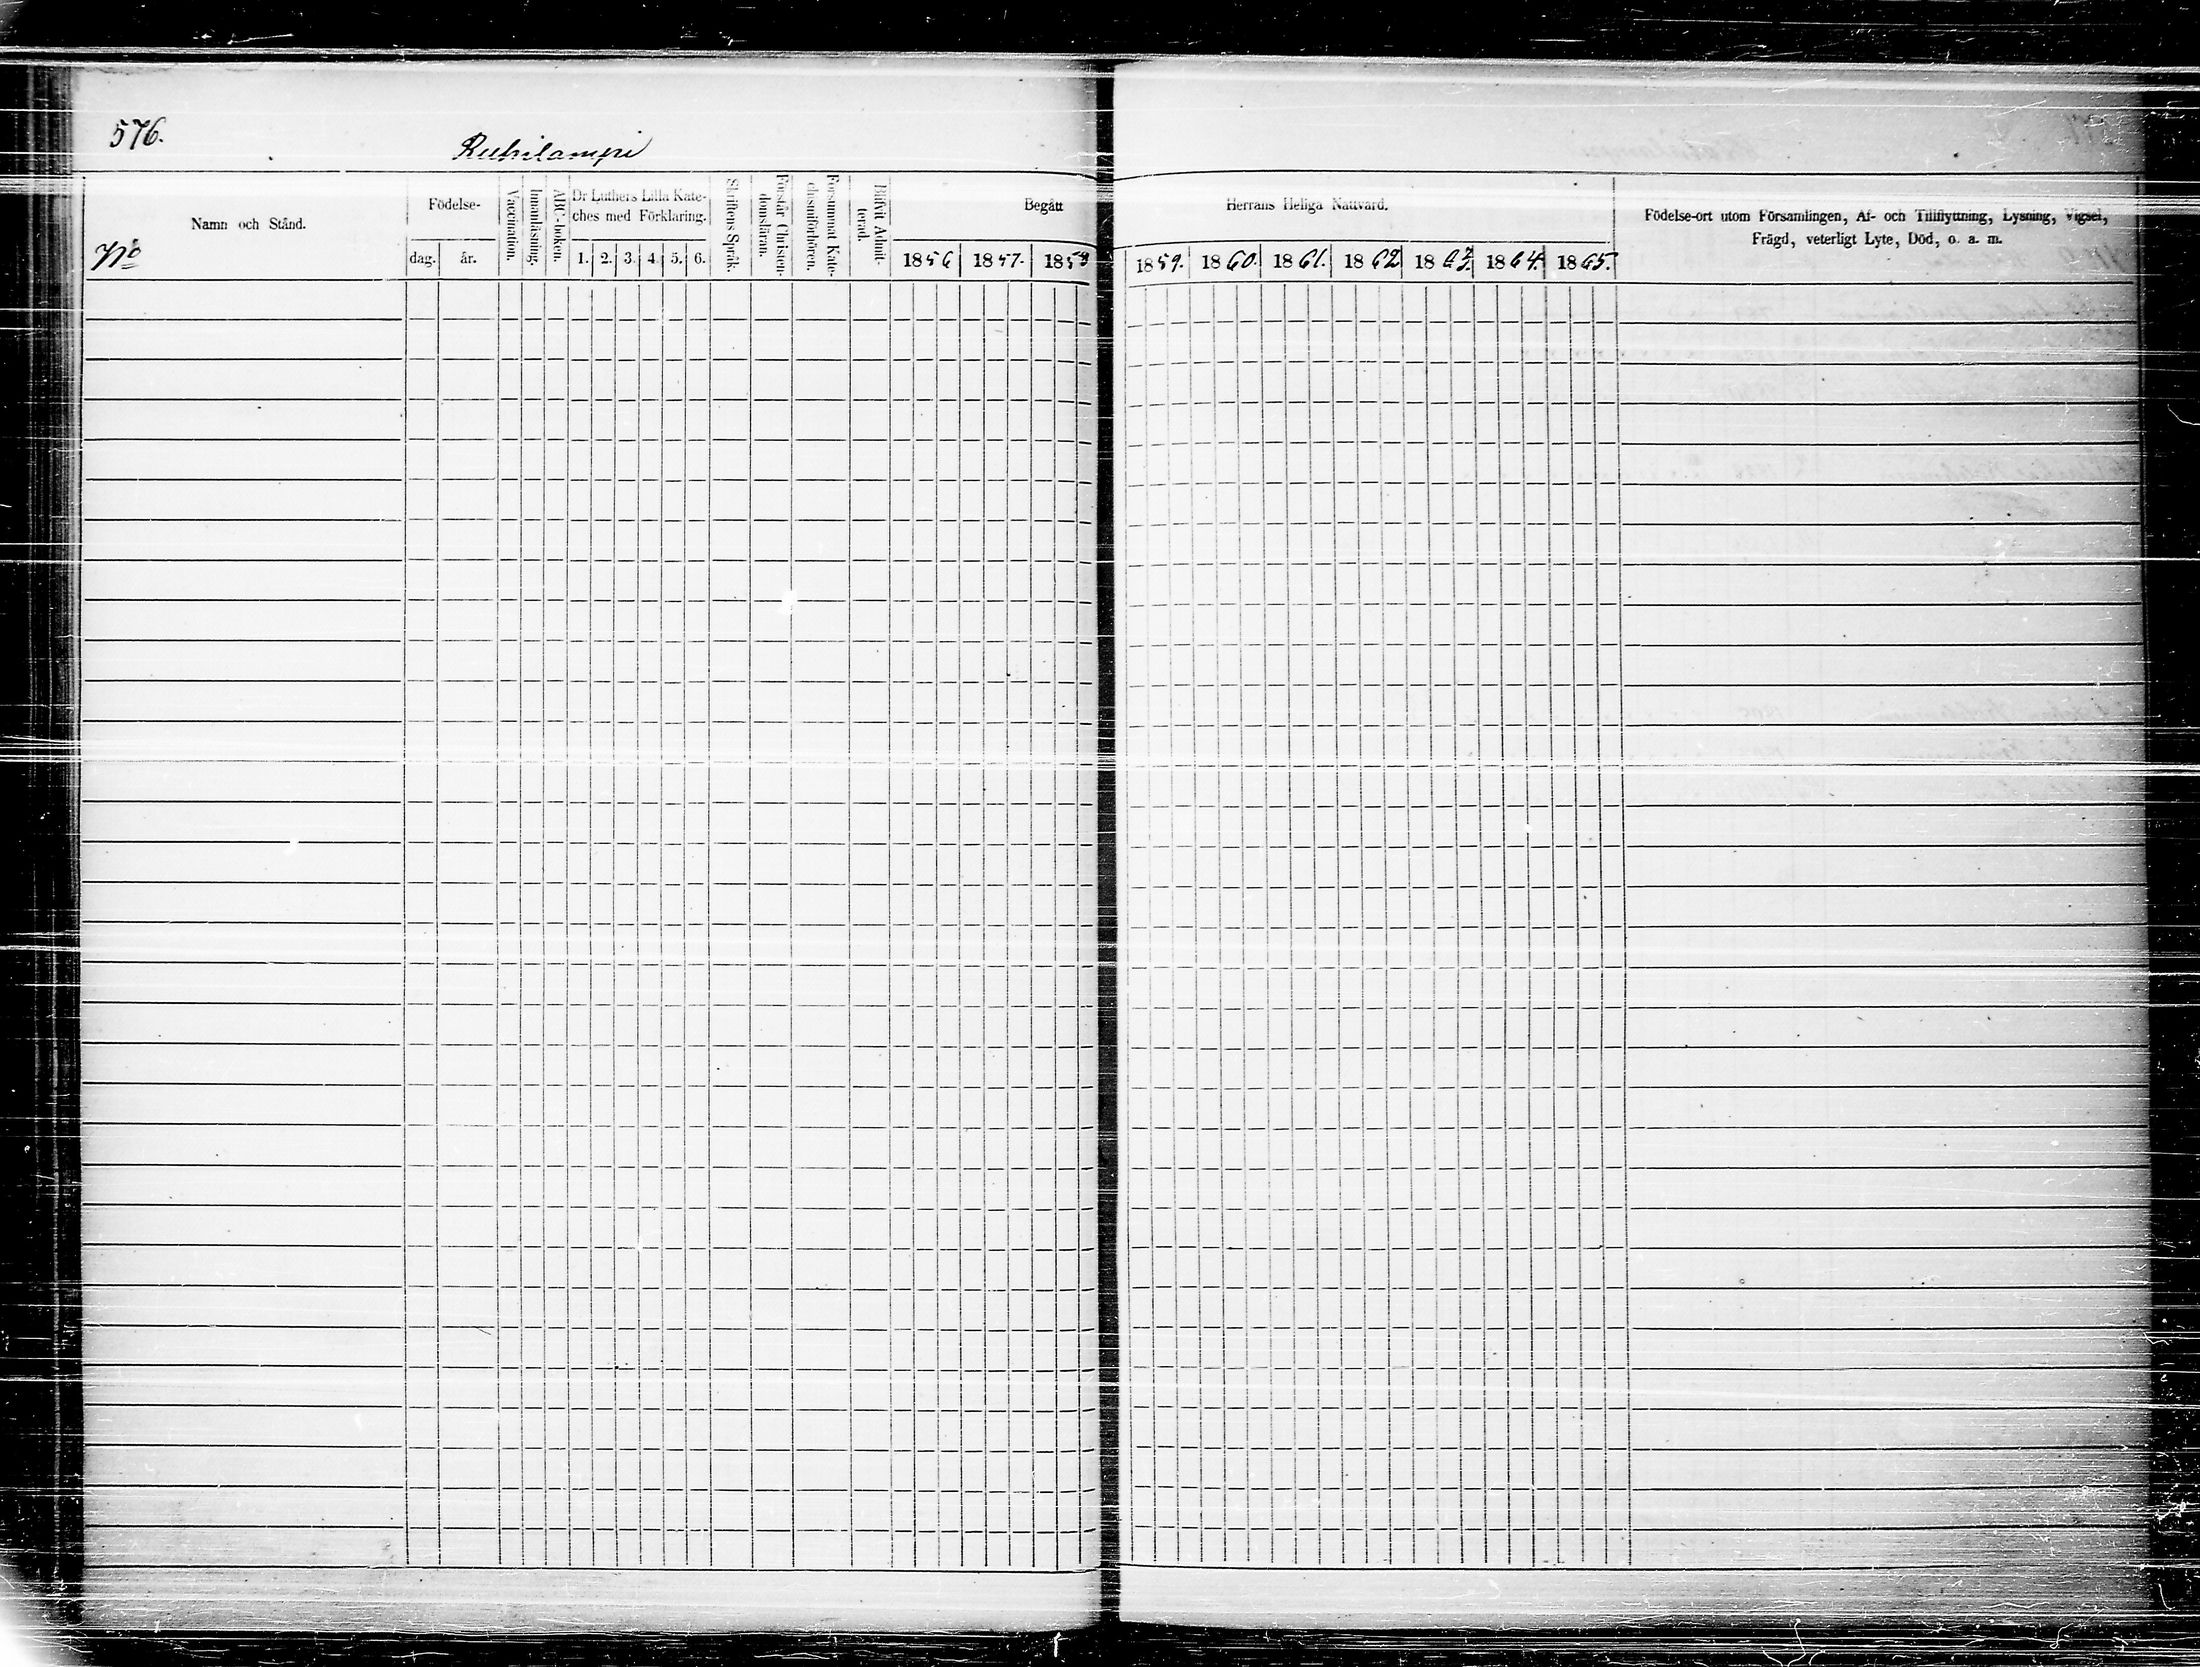 576.
Ruhilampi
Namn och Stånd.
No
Födelse-
dag.
år.
Vaccination.
Innanläsning.
ABC-boken.
Dr Luthers Lilla Kate-
ches med Förklaring.
1. 2. 3. 4. 5. 6.
Skriftens Språk.
Förstår Christen-
domsläran.
Försummat Kate-
chismiförhören.
Blifvit Admit-
terad.
Begått
1856 1857. 1858
Herrans Heliga Nattvard.
1859. 1860. 1861. 1862 1863. 1864. 1865.
Födelse-ort utom Församlingen, Af- och Tillflyttning, Lysning, Vigsel,
Frägd, veterligt Lyte, Död, o. a. m.